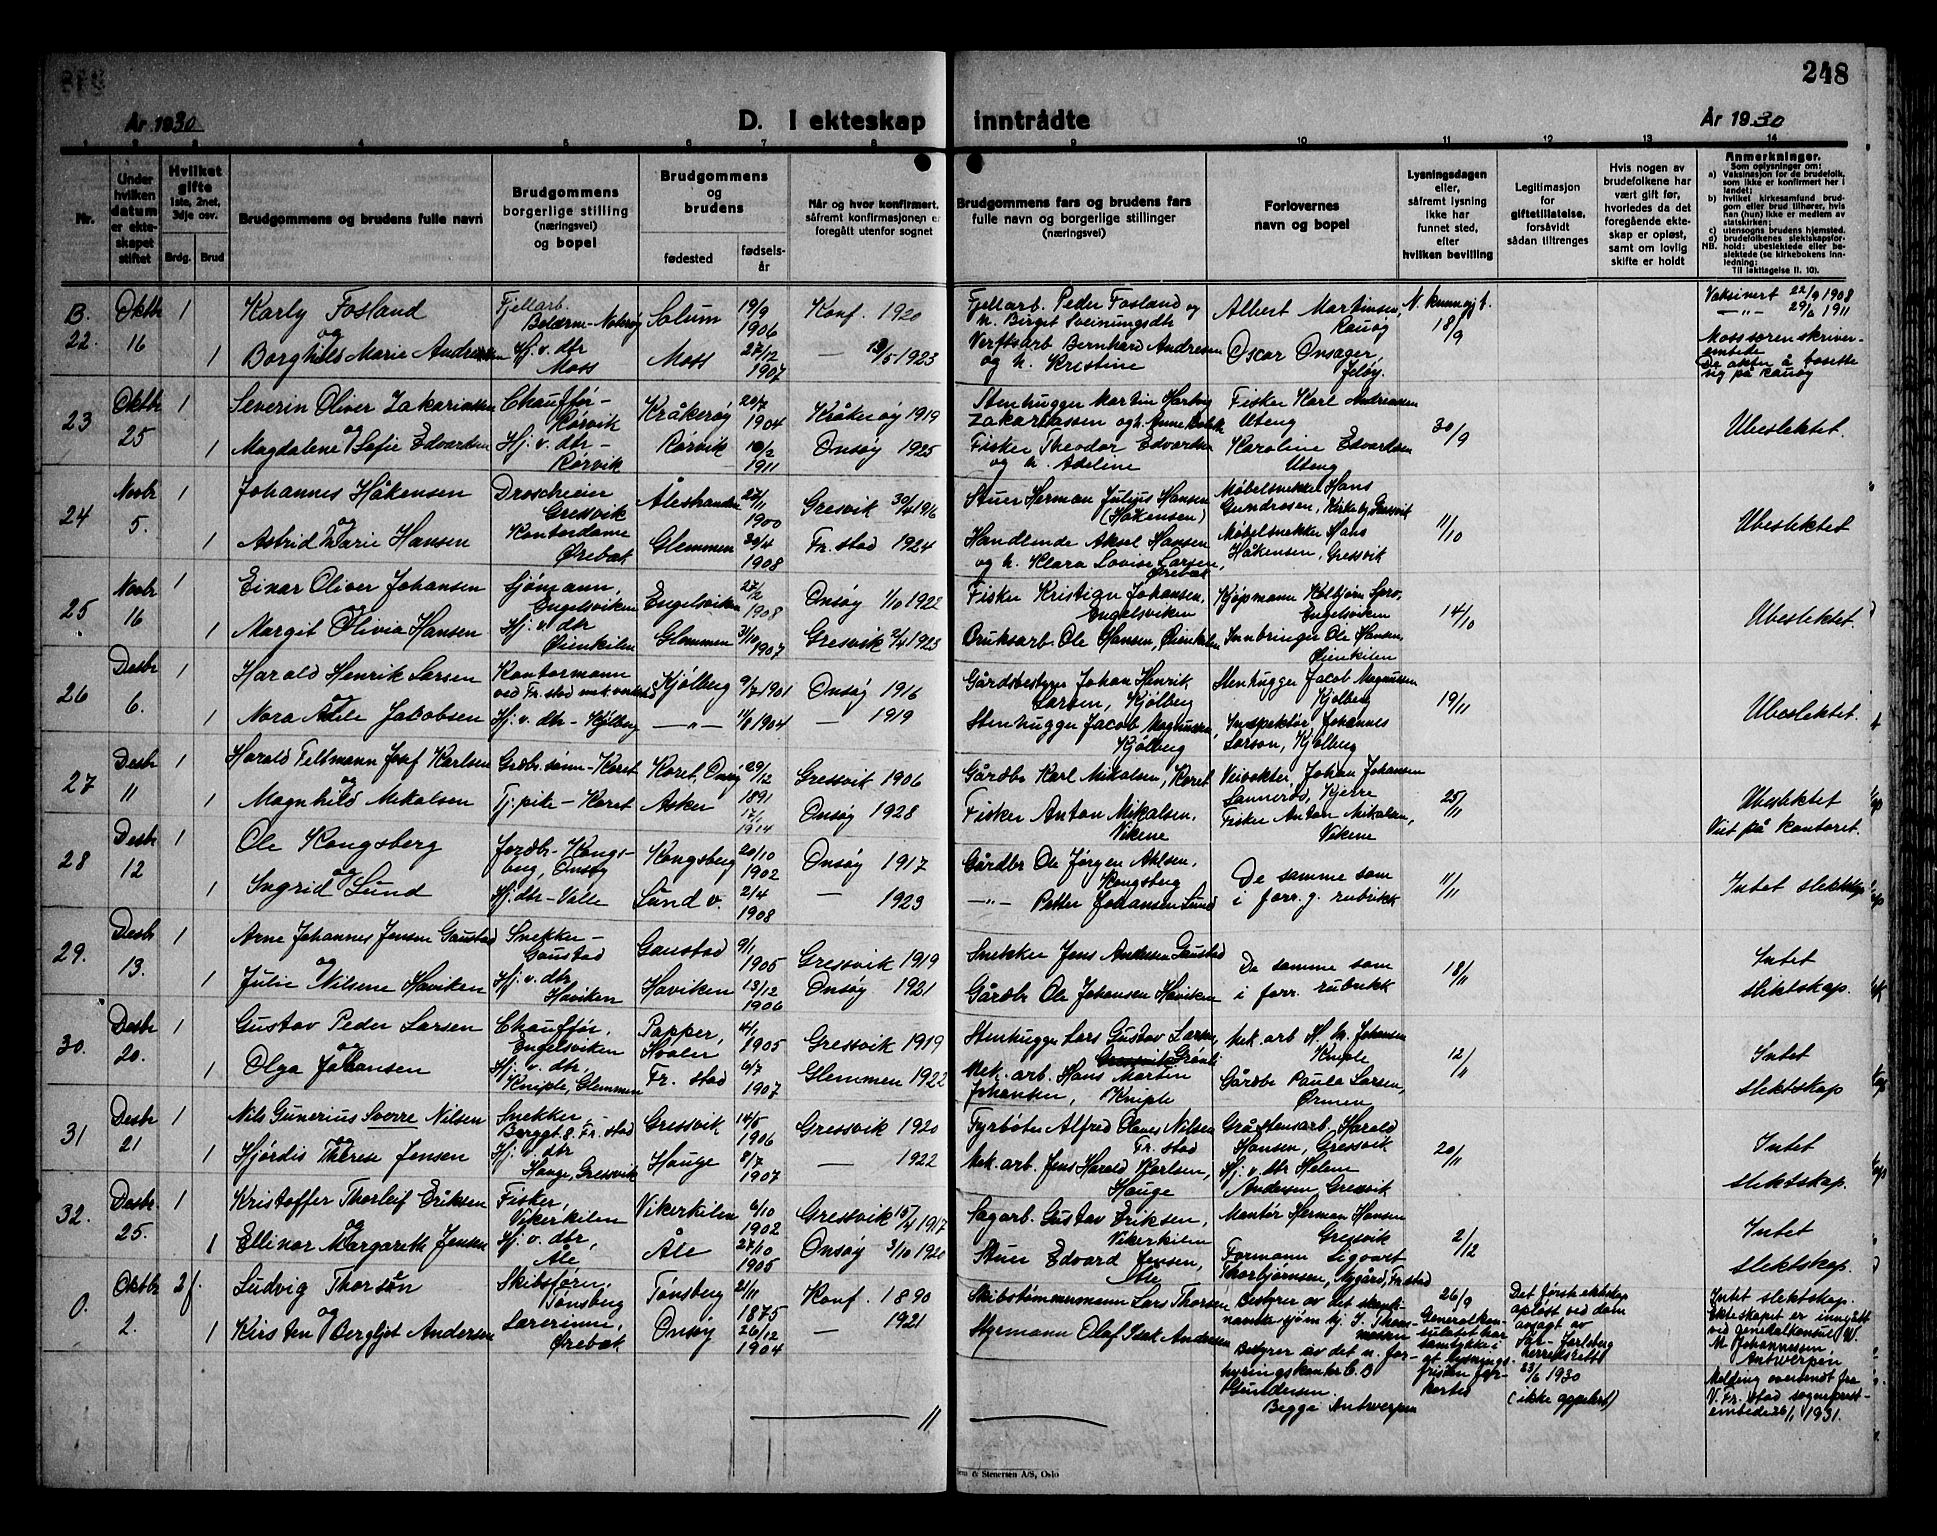 248
År 1930
D. I ekteskap inntrådte
År 1930
1 2 3 4 5 6 7 8 9 10 11 12 13 14
Nr.
Under hvilken datum er ekteskapet stiftet
Hvilket gifte 1ste, 2net, 3dje osv.
Brdg. Brud
Brudgommens og brudens fulle navn
Brudgommens borgerlige stilling (næringsvei) og bopel
Brudgommens og brudens
fødested
fødselsår
Når og hvor konfirmert, såfremt konfirmasjonen er foregått utenfor sognet
Brudgommens fars og brudens fars fulle navn og borgerlige stillinger (næringsvei)
Forlovernes navn og bopel
Lysningsdagen eller, såfremt lysning ikke har funnet sted, efter hvilken bevilling
Legitimasjon for giftetillatelse, forsåvidt sådan tiltrenges
Hvis nogen av brudefolkene har vært gift før, hvorledes da det foregående ekteskap er opløst, samt om lovlig skifte er holdt
Anmerkninger.
Som oplysninger om:
a) Vaksinasjon for de brudefolk, som ikke er konfirmert her i landet;
b) hvilket kirkesamfund brudgom eller brud tilhører, hvis han (hun) ikke er medlem av statskirken;
c) utensogns brudens hjemsted.
d) brudefolkenes slektskapsforhold: ubeslektede eller beslektede (se kirkebokens innledning:
NB. Til iakttagelse II. 10).
B. 22. Oktbr 16 1 Karly Fosland Fjellarb. Bolærne-Nøterøy Solum 19/9 1906 Konf. 1920 Fjellarb. Peder Fosland og h. Birgit Sveinungsdtr Albert Martinsen, Rauøy 18/9 Vaksinert 22/9 1908
og
1 Borghild Marie Andresen Hj. v. dtr Moss Moss 27/12 1907 — 13/5 1923 Verftsarb Bernhard Andresen og h. Kristine Oscar Onsager, Jeløy. —"— 29/6 1911 Moss sorenskriverembede De akter å bosette sig på Rauøy
23 Oktbr 25 1 Severin Oliver Zakariassen Chauffør- Rørvik Kråkerøy 20/7 1904 Kråkerøy 1919 Stenhugger Martin Hartvig Zakariassen og h. Anne Fisker Karl Andreassen Uteng 30/9 Ubeslektet.
og
1 Magdalene Sofie Edvardsen Hj. v. dtr- Rørvik Rørvik 10/2 1911 Onsøy 1925 Fisker Theodor Edvardsen og h. Adeline Karoline Edvardsen Uteng
24 Novbr 5. 1 Johannes Håkensen Droscheeier Gressvik Ålestranden 27/11 1900 Gresvik 30/4 1916 Stuer Herman Julius Hansen (Håkensen) Møbelsnekker Hans Gundrosen, Kirkeby, Gressvik 11/10 Ubeslektet
og
1 Astrid Marie Hansen Kontordame Ørebæk Glemmen 30/4 1908 Fr.stad 1924 Handlende Aksel Hansen og h. Klara Lovise Larsen, Ørebæk Møbelsnekker Hans Håkensen, Gressvik
25 Novbr 16 1 Einar Oliver Johansen Sjømann, Engelsviken Engelsviken 27/2 1908 Onsøy 1/10 1922 Fisker Kristian Johansen, Engelsviken Kjøpmann Kolbjørn Engelsviken 14/10 Ubeslektet.
og
1 Margit Olivia Hansen Hj. v. dtr Øienkilen Glemmen 3/10 1907 Gresvik 1923 Bruksarb. Ole Hansen, Øienkilen Innbringer Ole Hansen, Øienkilen
26 Desbr 6. 1 Harald Henrik Larsen Kontormann ved Fr.stad mek verksted Kjølberg 9/7 1901 Onsøy 1916 Gårdsbestyrer Johan Henrik Larsen, Kjølberg Stenhugger Jacob Magnussen Kjølberg 19/11 Ubeslektet.
og
1 Nora Adele Jacobsen Hj. v. dtr - Kjølberg —"— 11/8 1904 — 1919 Stenhugger Jacob Magnussen, Kjølberg Inspektør Johannes Larson, Kjølberg
27 Desbr 11 1 Harald Feltmann Josef Karlsen Grdbr.sønn - Koret Koret, Onsøy 29/12 1891 Gressvik 1906 Gårdbr Karl Mikalsen, Koret Veivokter, Johan Johansen Sannerød, Kjerre 25/11 Ubeslektet
og
1 Magnhild Mikalsen Tj.pike - Koret Asker 17/1 1914 Onsøy 1928 Fisker Anton Mikalsen, Vikene Fisker Anton Mikalsen, Vikene Viet på kontoret.
28 Desbr 12 1 Ole Kongsberg Jordbr - Kongsberg, Onsøy Kongsberg 20/10 1902 Onsøy 1917 Gårdbr Ole Jørgen Ahlsen, Kongsberg De samme som i forr. g. rubrikk 11/11 Intet slektskap
og
1 Ingrid Lund Hj. dtr - Valle Lund v. 2/4 1908 — 1923 —"— Petter Johansen Lund
29. Desbr 13. 1 Arne Johannes Jensen Gaustad Snekker - Gaustad Gaustad 9/1 1905 Gressvik 1919 Snekker Jens Andersen Gaustad De samme som i forr. rubrikk 18/11 Intet slektskap.
og
1 Julie Nilsene Haviken Hj. v. dtr Haviken Haviken 13/12 1906 Onsøy 1921 Gårdbr Ole Johansen Haviken
30. Desbr 20. 1 Gustav Peder Larsen Chauffør, Engelsviken Papper, Hvaler 4/1 1905 Gressvik 1919 Stenhugger Lars Gustav Larsen, Grønli Mek. arb H. M. Johansen Kniple 12/11 Intet slektskap
og
1 Olga Johansen Hj. v. dtr, Kniple, Glemmen Fr. stad 6/7 1907 Glemmen 1922 Mek. arb. Hans Martin Johansen, Kniple Gårdbr Paula Larsen, Ørmen
31 Desbr 21 1 Nils Gunerius Sverre Nilsen Snekker, - Berggt 8. Fr. stad Gressvik 14/5 1906 Gressvik 1920 Fyrbøter Alfred Olaves Nilsen Fr. stad Gråstensarb. Harald Hansen, Gressvik 20/11 Intet slektskap.
og
1 Hjørdis Therese Jensen Hj. v. dtr Hauge, Gressvik Hauge 8/7 1907 — 1922 Mek. arb. Jens Harald Karlsen, Hauge Hj. v. dtr Helene Andersen Gresvik
32. Desbr 25. 1 Kristoffer Thorleif Eriksen Fisker, Vikerkilen Vikerkilen 6/10 1902 Gressvik 15/4 1917 Sagarb. Gustav Eriksen, Vikerkilen Montør Herman Hansen Gresvik 2/12 Intet slektskap.
og
1 Ellinor Margareth Jensen Hj. v. dtr, Åle Åle 27/10 1905 Onsøy 3/10 1920 Stuer Edvard Jensen, Åle Formann Sigvart Thorbjørnsen, Nygård, Fr.stad
0. Oktbr 2. 2 f. Ludvig Thorsön Skibsfører, Tønsberg Tønsberg 21/11 1875 Konf. 1890 Skibstømmermann Lars Thorsen Bestyrer av det skandinaviske sjøm. hj. I. Thommessen 26/9 Generalkonsulatet har samtykke i at lysningsfristen forkortes Det første ekteskap opløst ved dom avsagt av Sør-Jarlsberg herredsrett 23/6 1930 (ikke appelert)
og
1 Kirsten Bergljot Andersen Lærerinne, Ørebæk Onsøy 26/12 1904 — 1921 Styrmann Olaf Isak Andersen Bestyrer av det n. forhyringskontor C. B. Gundersen. Begge Antwerpen
Intet slektskap. Ekteskapet er inngått ved Generalkonsul W. M. Johannessen, Antwerpen
Melding oversendt fra V. Fr.stad sogneprestembede 26/1 1931.
11
& Stenersen A/S, Oslo